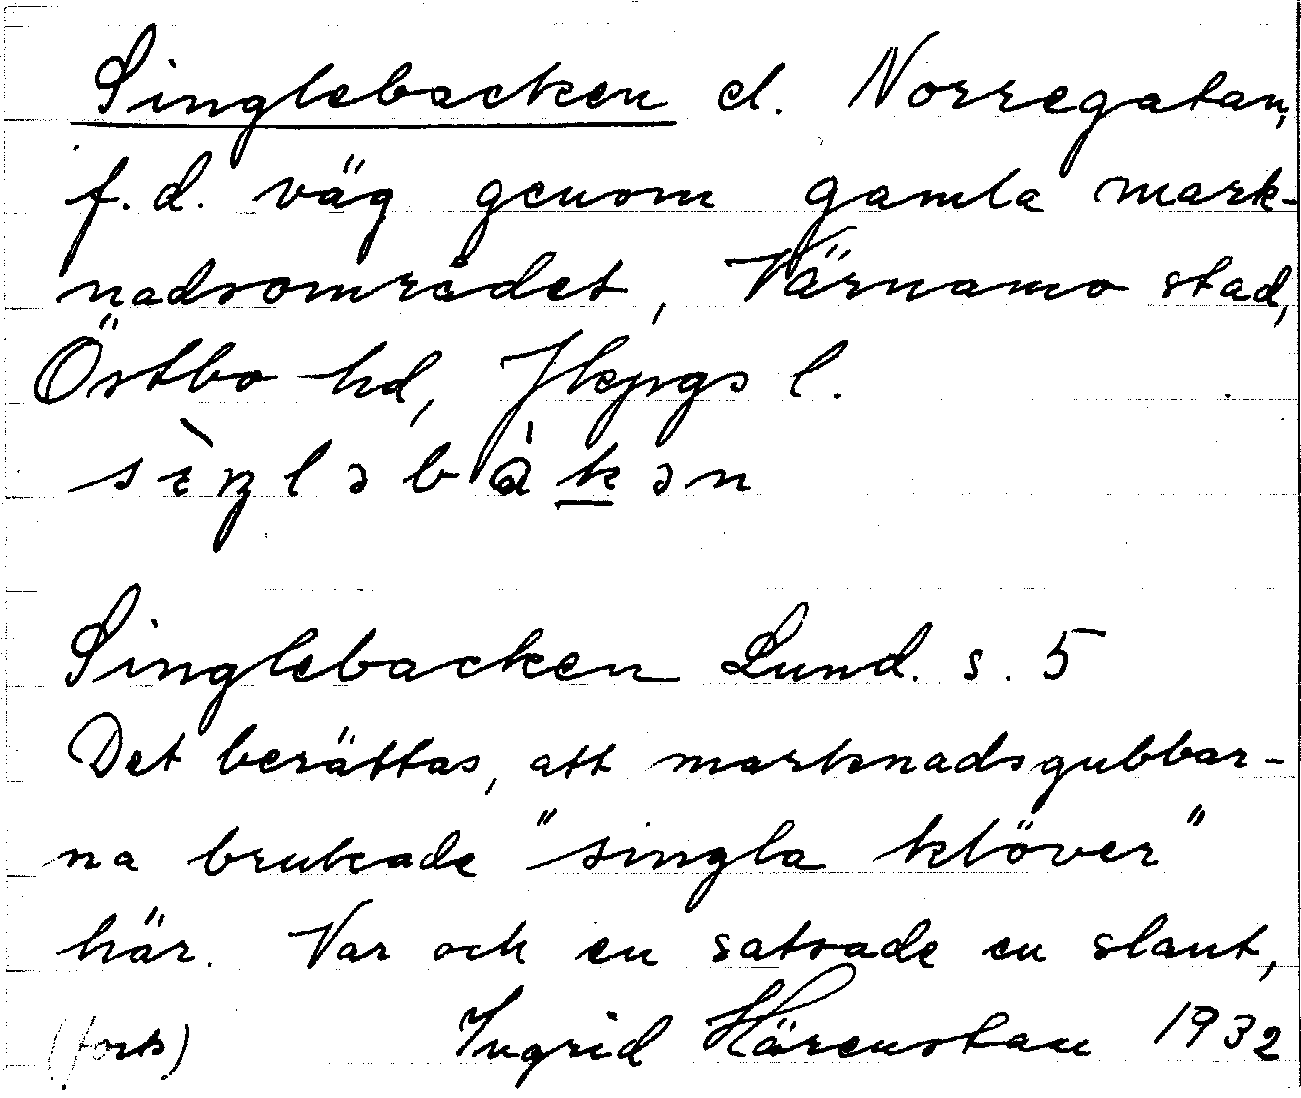 Singlebacken el. Norregatan,
f.d. väg genom gamla mark-
nadsområdet, Värnamo stad,
Östbo hd, Jkpgs l.
sìŋləbàkən
Singlebacken Lund. s. 5
Det berättas, att marknadsgubbar-
na brukade "singla klöver"
här. Var och en satsade en slant,
(forts) Ingrid Härenstam 1932